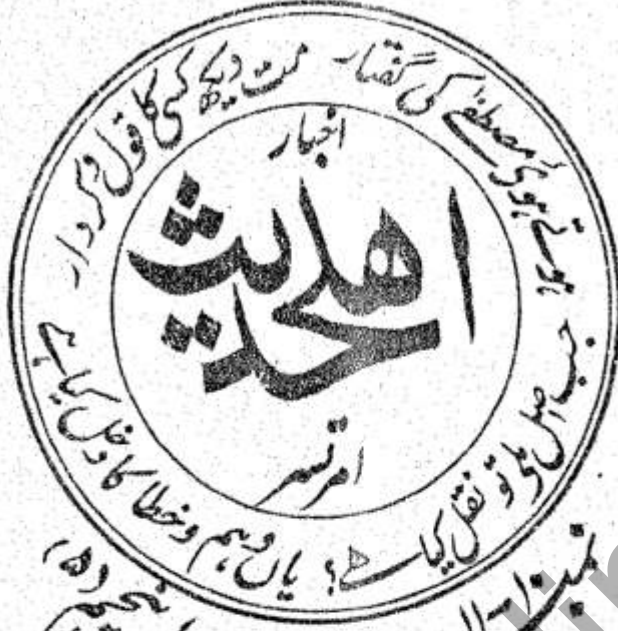 ہوتے ہوئے مصطفےٰ کی گفتار مت دیکھ کسی کا قول و کردار
جب اصل ملی تو نقل کیا ہے؟ یاں وہم و خطا کا دخل کیا ہے
اخبار
اھلحدیث
امرتسر
پنجم (۵)